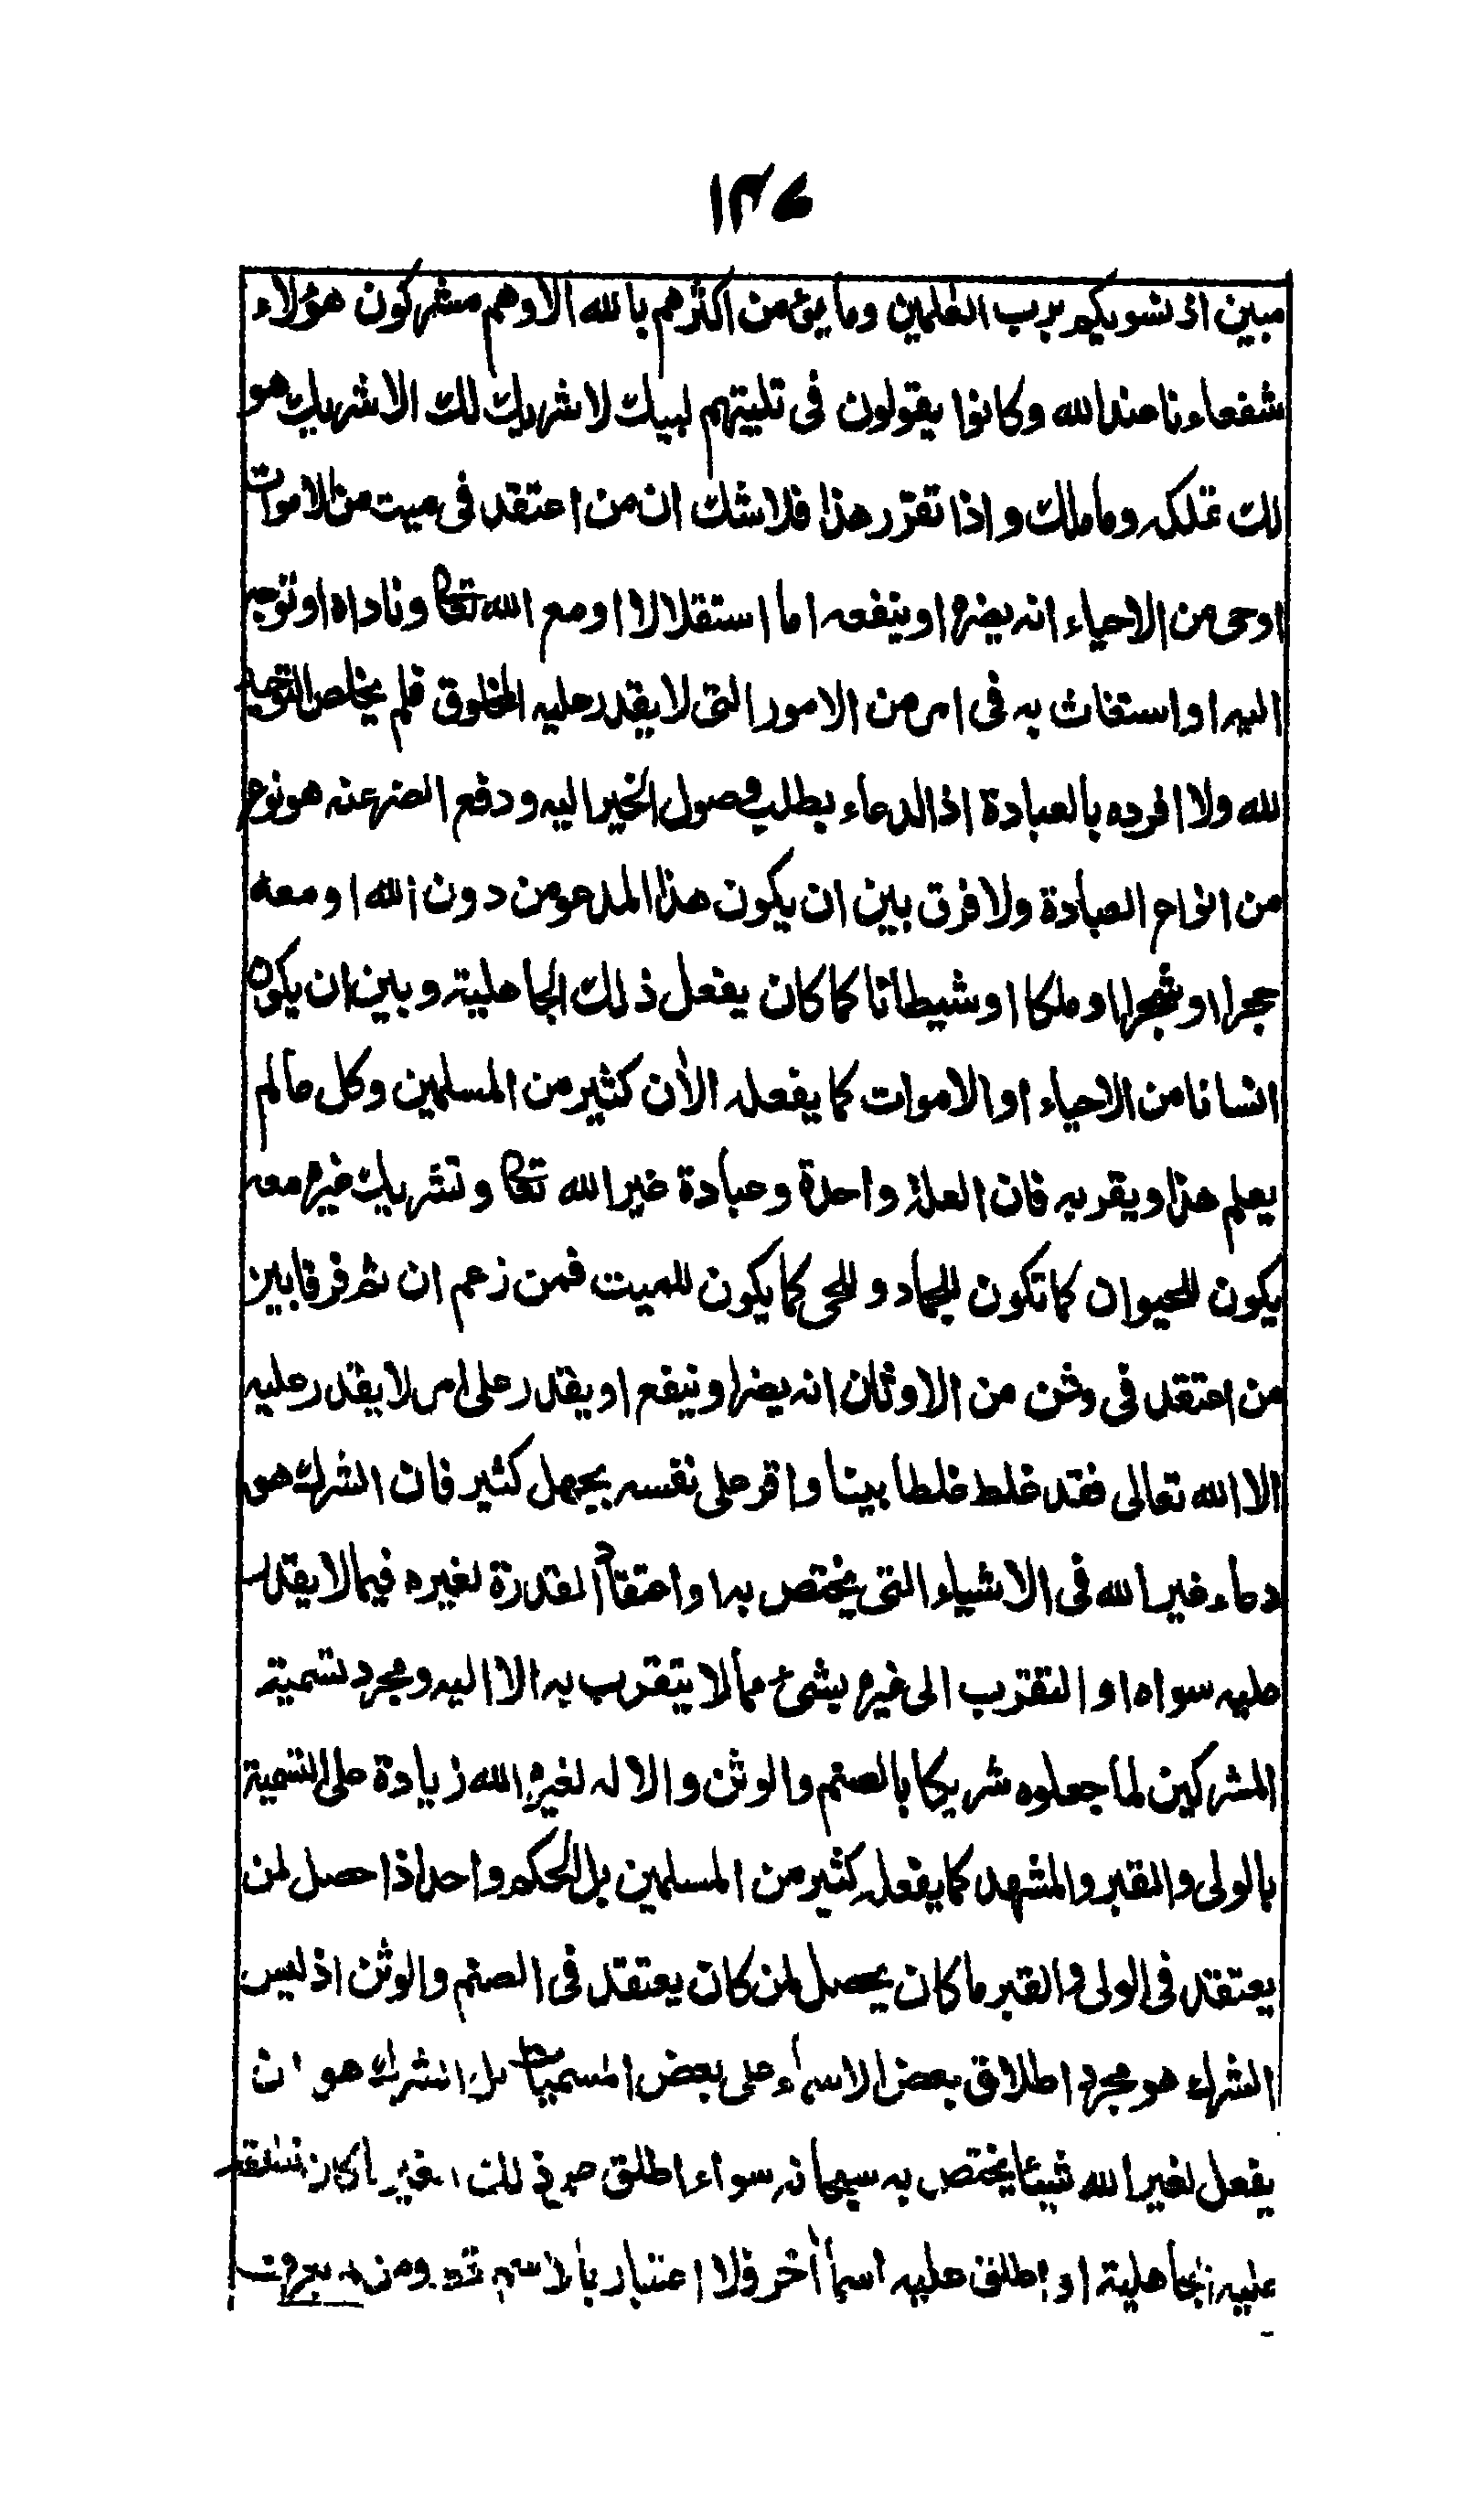 ١٣٤
مبين اذ نسويكم برب العلمين وما يؤمن اكثرهم بالله الا وهم مشركون هؤلاء
شفعاءنا عند الله وكانوا يقولون فى تلبيتهم لبيك لا شريك لك الا شريك هو
لك تملكه وما ملك واذا تقرر هذا فلا شك ان من اعتقد فى ميت من الاموات
او حى من الاحياء انه يضره او ينفعه اما استقلالا او مع الله تعالى وناداه او توجه
اليه او استغاث به فى امر من الامور التى لا يقدر عليه المخلوق فلم يخلص التوحيد
لله ولا افرده بالعبادة اذ الدعاء بطلب وصول الخير اليه ودفع الضر عنه هو نوع
من انواع العبادة ولا فرق بين ان يكون هذا المدعو من دون الله او معه
حجرا او شجرا او ملكا او شيطانا كما كان يفعل ذلك الجاهلية وبين ان يكون
انسانا من الاحياء او الاموات كما يفعله الأن كثير من المسلمين وكل عالم
يعلم هذا ويقر به فان العلة واحدة وعبادة غير الله تعالى وتشريك غيره معه
يكون للحيوان كما تكون للجماد وللحى كما يكون للميت فمن زعم ان ثم فرقا بين
من اعتقد فى وثن من الاوثان انه يضر او ينفع او يقدر على امر لا يقدر عليه
الا الله تعالى فقد غلط غلطا بينا واقر على نفسه بجهل كثير فان الشرك هو
دعاء غير الله فى الاشياء التى يختص به او اعتقاد القدرة لغيره فيما لا يقدر
عليه سواه او التقرب الى غيره بشىء مما لا يتقرب به الا اليه ومجرد تسمية
المشركين لما جعلوه شريكا بالصنم والوثن والاله لغير الله زيادة على التسمية
بالولى والقبر والمشهد كما يفعله كثير من المسلمين بل الحكم واحد اذا حصل لمن
يعتقد فى الولى والقبر ما كان يحصل لمن كان يعتقد فى الصنم والوثن اذ ليس
الشرك هو مجرد اطلاق بعض الاسماء على بعض المسميات بل الشرك هو ان
يفعل لغير الله شيئا يختص به سبحانه سواء اطلق على ذلك الغير ما كان تطلقه
عليه الجاهلية او اطلق عليه اسما أخر فلا اعتبار بالاسم قط ومن لم يعرف